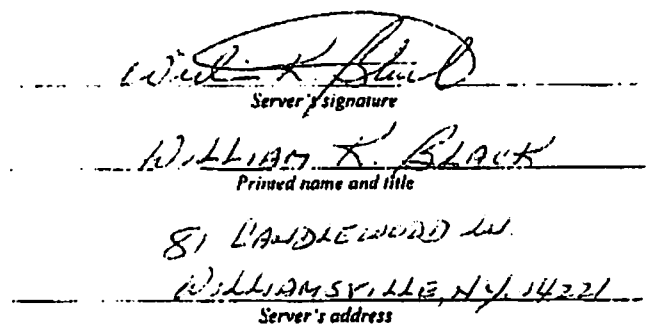 William K. Black
Server's signature
WILLIAM K. BLACK
Printed name and title
81 CANDLEWOOD LN.
WILLIAMSVILLE, NY. 14221
Server's address